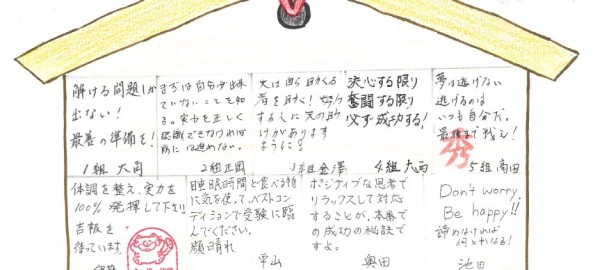 解ける問題しか
出ない！
最善の準備を！
1組 大角
まずは自分が出来
ていないことを知
る。実力を正しく
認識できなければ
前には進めない。
2組 正岡
天は自ら助くる
者を助く！努力
する人に天の助
けがあります
ように！
3組 金澤
決心する限り
奮闘する限り
必ず成功する！
4組 大西
夢は逃げない
逃げるのは
いつも自分だ。
最後まで戦え！
秀
5組 高田
体調を整え、実力を
100% 発揮して下さい!!
吉報を
待っています。
睡眠時間と食べる物
に気を使って、ベストコン
ディションで受験に臨
んでください。
顔晴れ
平山
ポジティブな思考で
リラックスして対応
することが、本番で
の成功の秘訣で
すよ。
奥田
Don't worry
Be happy!!
諦めなければ
何とかなる！
池田